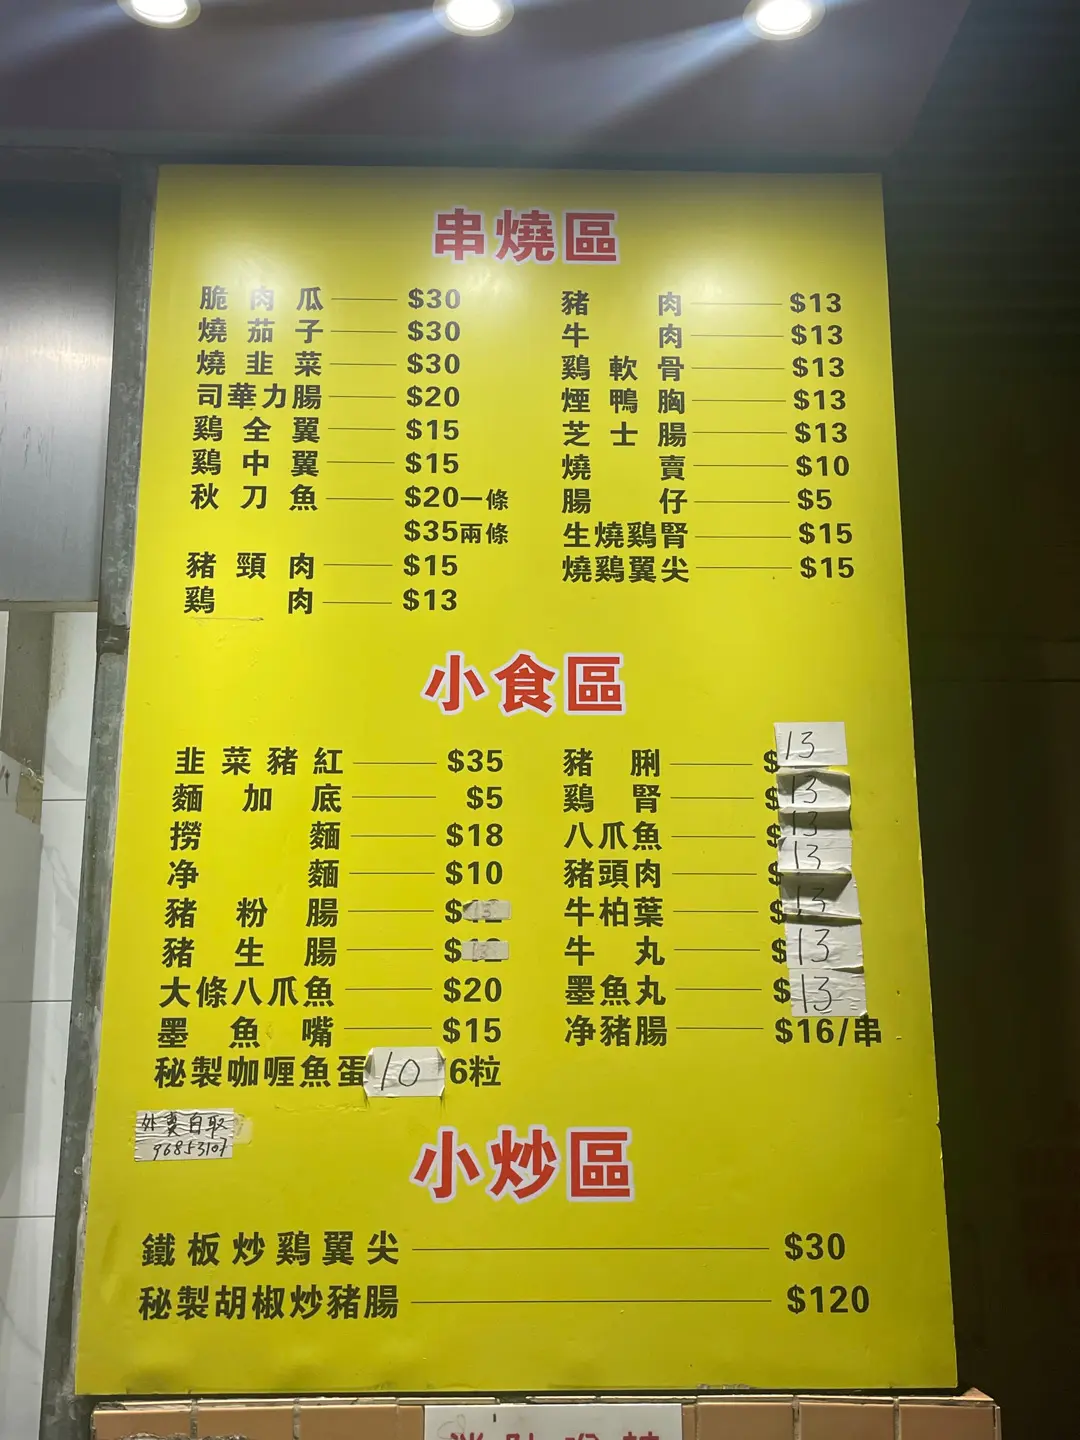 串燒區
脆肉瓜 $30
燒茄子 $30
燒韭菜 $30
司華力腸 $20
鷄全翼 $15
鷄中翼 $15
秋刀魚 $20一條
$35兩條
豬頸肉 $15
鷄肉 $13
豬肉 $13
牛肉 $13
鷄軟骨 $13
煙鴨胸 $13
芝士腸 $13
燒賣 $10
腸仔 $5
生燒鷄腎 $15
燒鷄翼尖 $15
小食區
韭菜豬紅 $35
麵加底 $5
撈麵 $18
净麵 $10
豬粉腸 $13
豬生腸 $13
大條八爪魚 $20
墨魚嘴 $15
秘製咖喱魚蛋 10 6粒
豬脷 $13
鷄腎 $13
八爪魚 $13
豬頭肉 $13
牛柏葉 $13
牛丸 $13
墨魚丸 $13
净豬腸 $16/串
外賣自取
96853107
小炒區
鐵板炒鷄翼尖 $30
秘製胡椒炒豬腸 $120